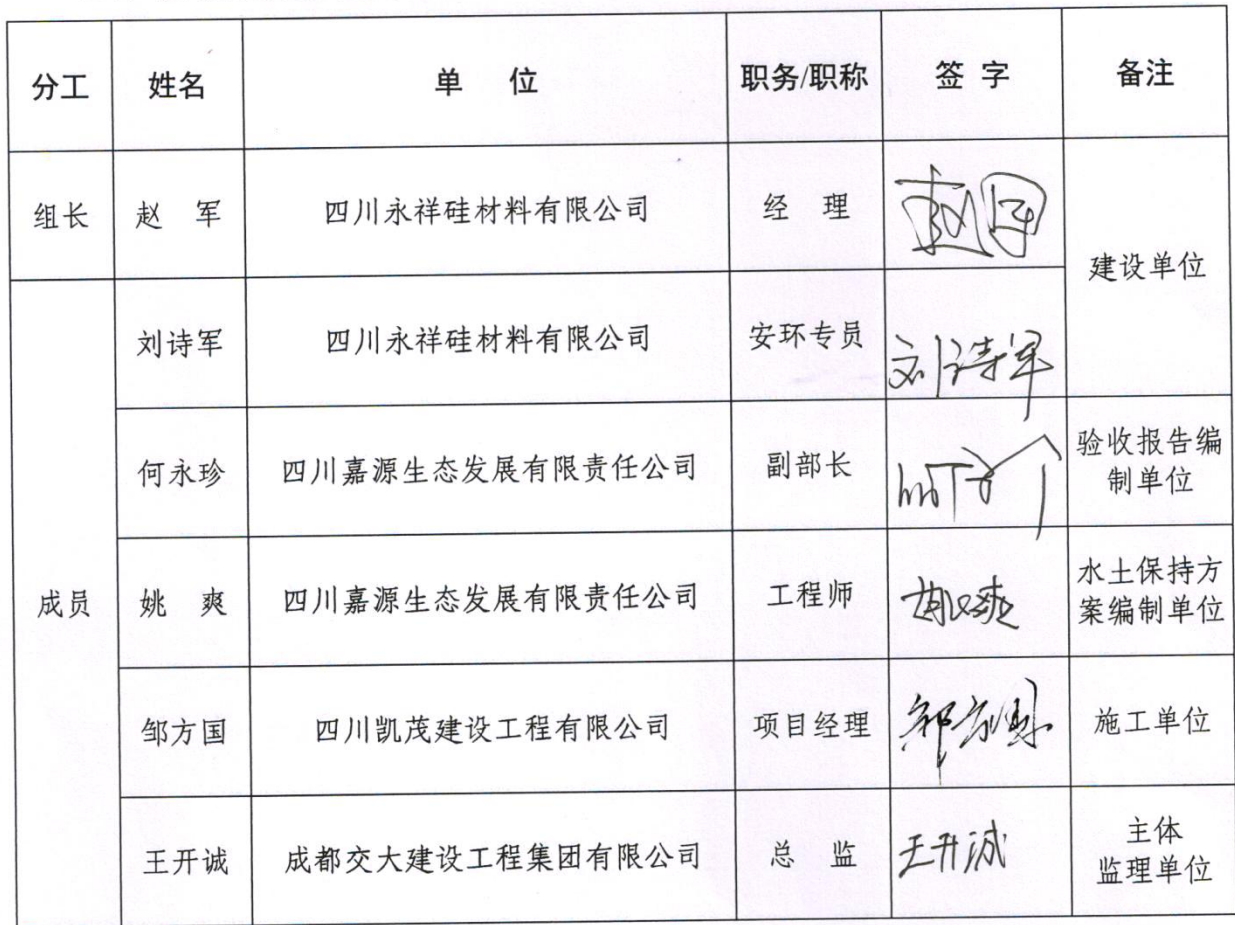 分工 姓名 单 位 职务/职称 签 字 备注
组长 赵 军 四川永祥硅材料有限公司 经 理 赵军 建设单位
成员
刘诗军 四川永祥硅材料有限公司 安环专员 刘诗军
何永珍 四川嘉源生态发展有限责任公司 副部长 验收报告编
制单位
姚 爽 四川嘉源生态发展有限责任公司 工程师 姚爽 水土保持方
案编制单位
邹方国 四川凯茂建设工程有限公司 项目经理 邹方国 施工单位
王开诚 成都交大建设工程集团有限公司 总 监 王开诚 主体
监理单位